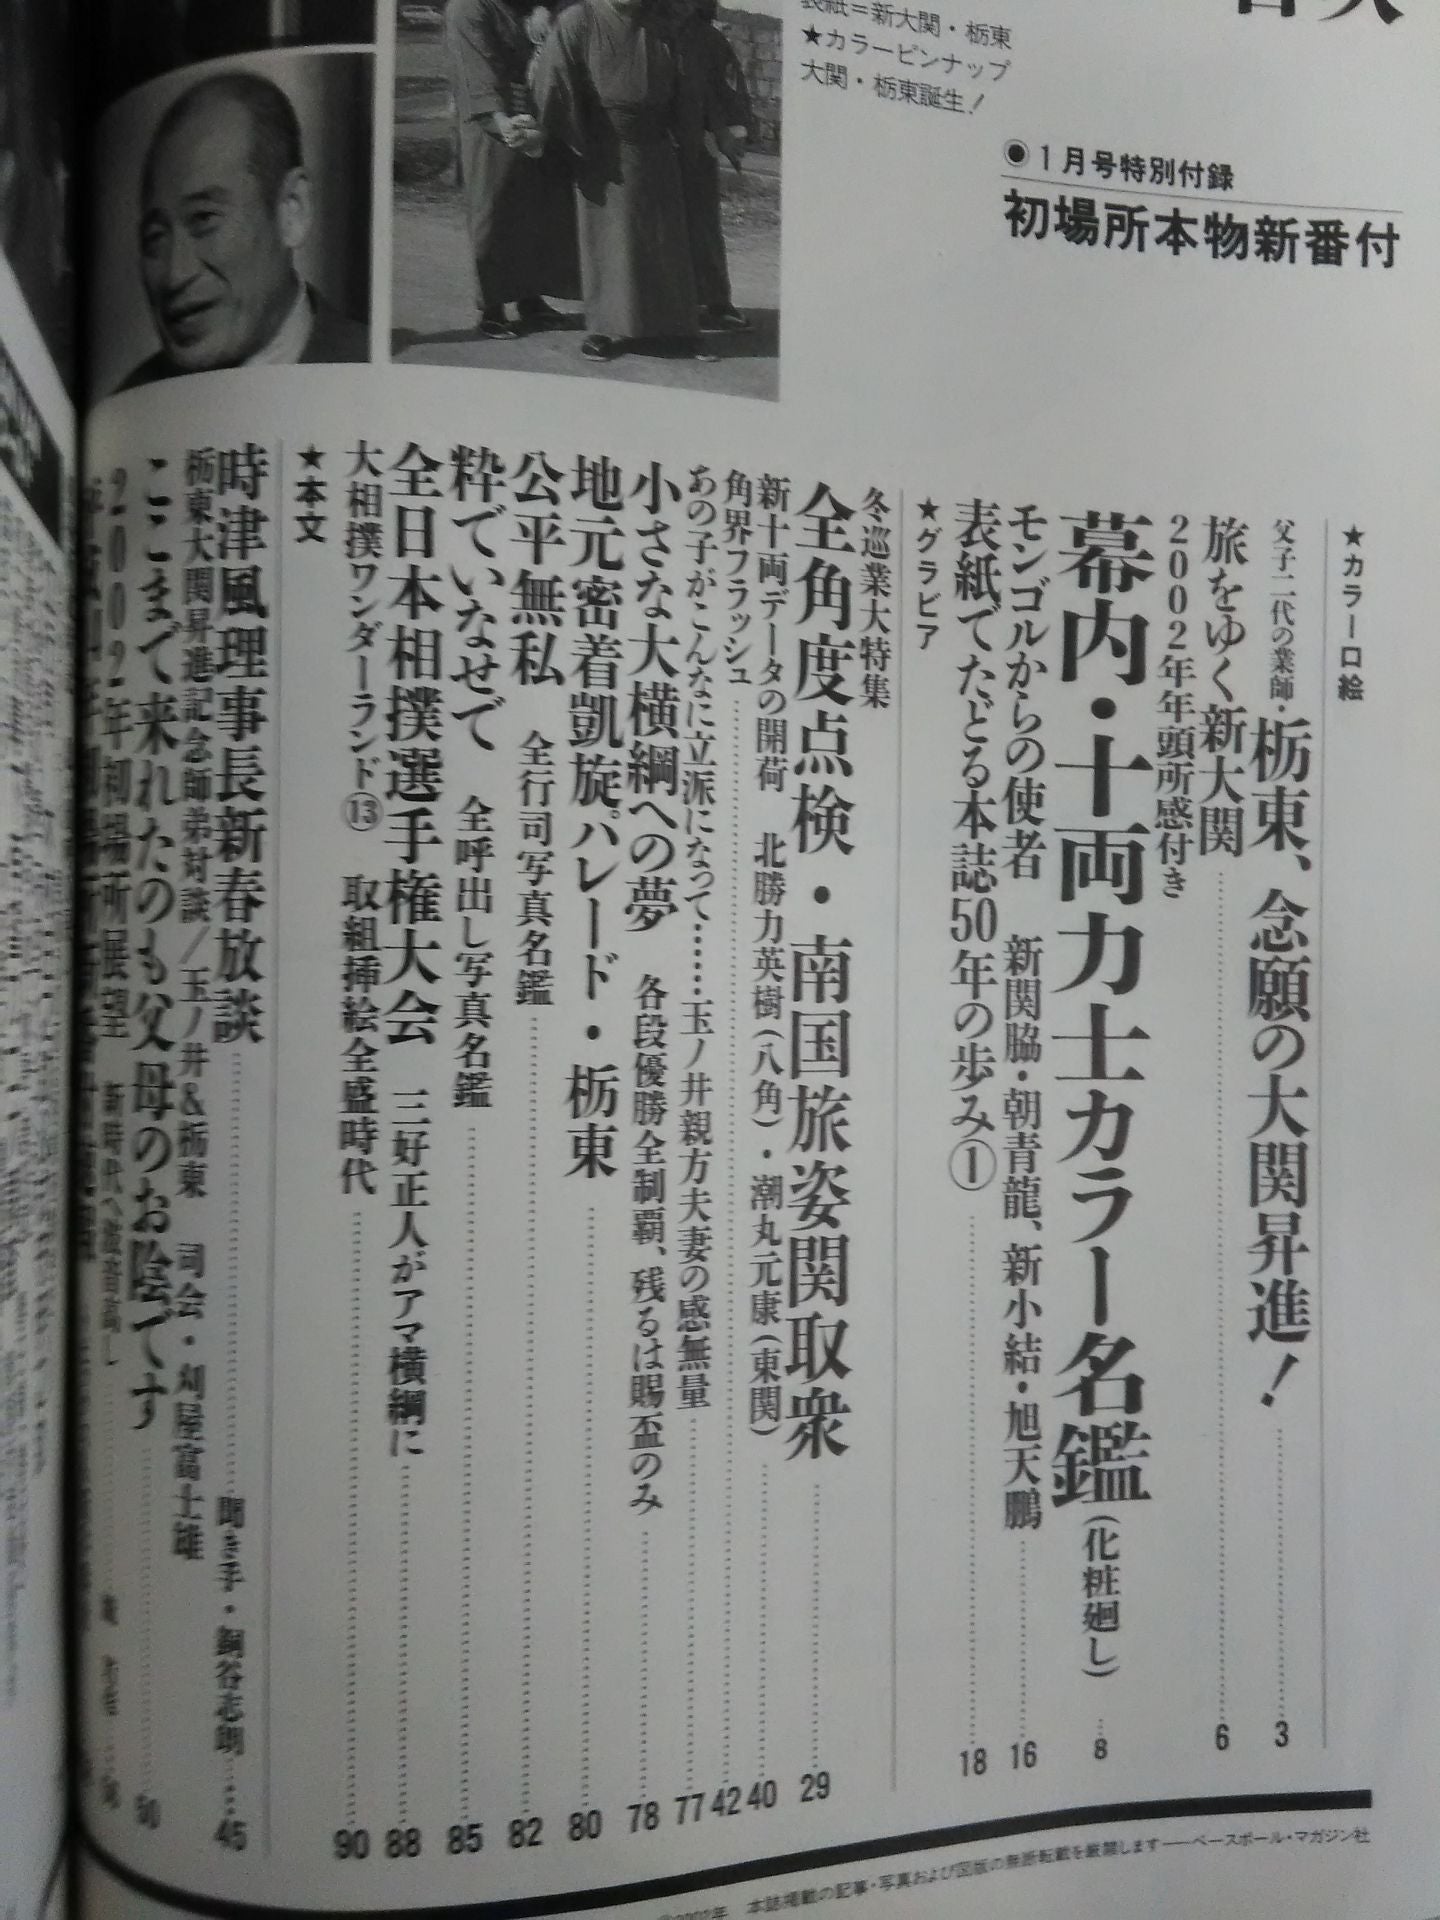 表紙=新大関・栃東
★カラーピンナップ
大関・栃東誕生!
◉1月号特別付録
初場所本物新番付
★カラー口絵
父子二代の業師・栃東、念願の大関昇進! 3
旅をゆく新大関 6
2002年年頭所感付き
幕内・十両力士カラー名鑑(化粧廻し) 8
モンゴルからの使者 新関脇・朝青龍、新小結・旭天鵬 16
表紙でたどる本誌50年の歩み① 18
★グラビア
冬巡業大特集
全角度点検・南国旅姿関取衆 29
新十両データの開荷 北勝力英樹(八角)・潮丸元康(東関) 40
角界フラッシュ 42
あの子がこんなに立派になって……玉ノ井親方夫妻の感無量 77
小さな大横綱への夢 各段優勝全制覇、残るは賜盃のみ 78
地元密着凱旋パレード・栃東 80
公平無私 全行司写真名鑑 82
粋でいなせで 全呼出し写真名鑑 85
全日本相撲選手権大会 三好正人がアマ横綱に 88
大相撲ワンダーランド⑬ 取組挿絵全盛時代 90
★本文
時津風理事長新春放談 聞き手・銅谷志朗 45
栃東大関昇進記念師弟対談/玉ノ井&栃東 司会・刈屋富士雄
ここまで来れたのも父母のお陰です 50
2002年初場所展望 新時代へ波音高し
©2002年 本誌掲載の記事・写真および図版の無断転載を厳禁します――ベースボール・マガジン社